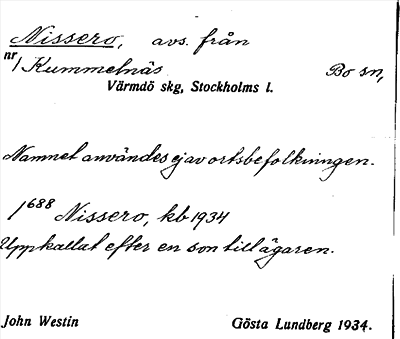 Nissero, avs. från
nr 1 Kummelnäs Bo sn,
Värmdö skg, Stockholms l.
Namnet användes ej av ortsbefolkningen.
1⁶⁸⁸ Nissero, kb 1934
Uppkallat efter en son till ägaren.
John Westin Gösta Lundberg 1934.